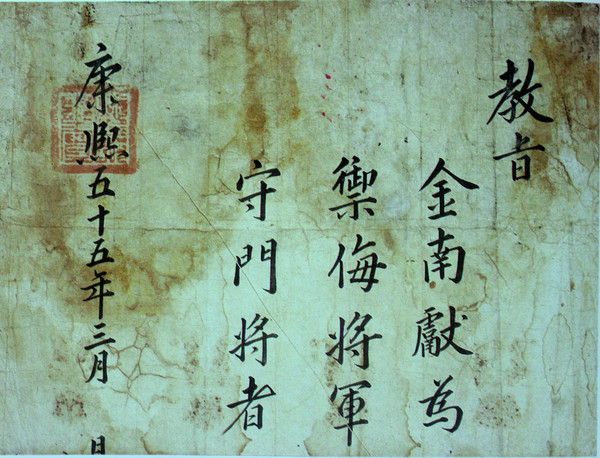 教旨
金南獻為
禦侮將軍
守門將者
康熙五十五年三月 日